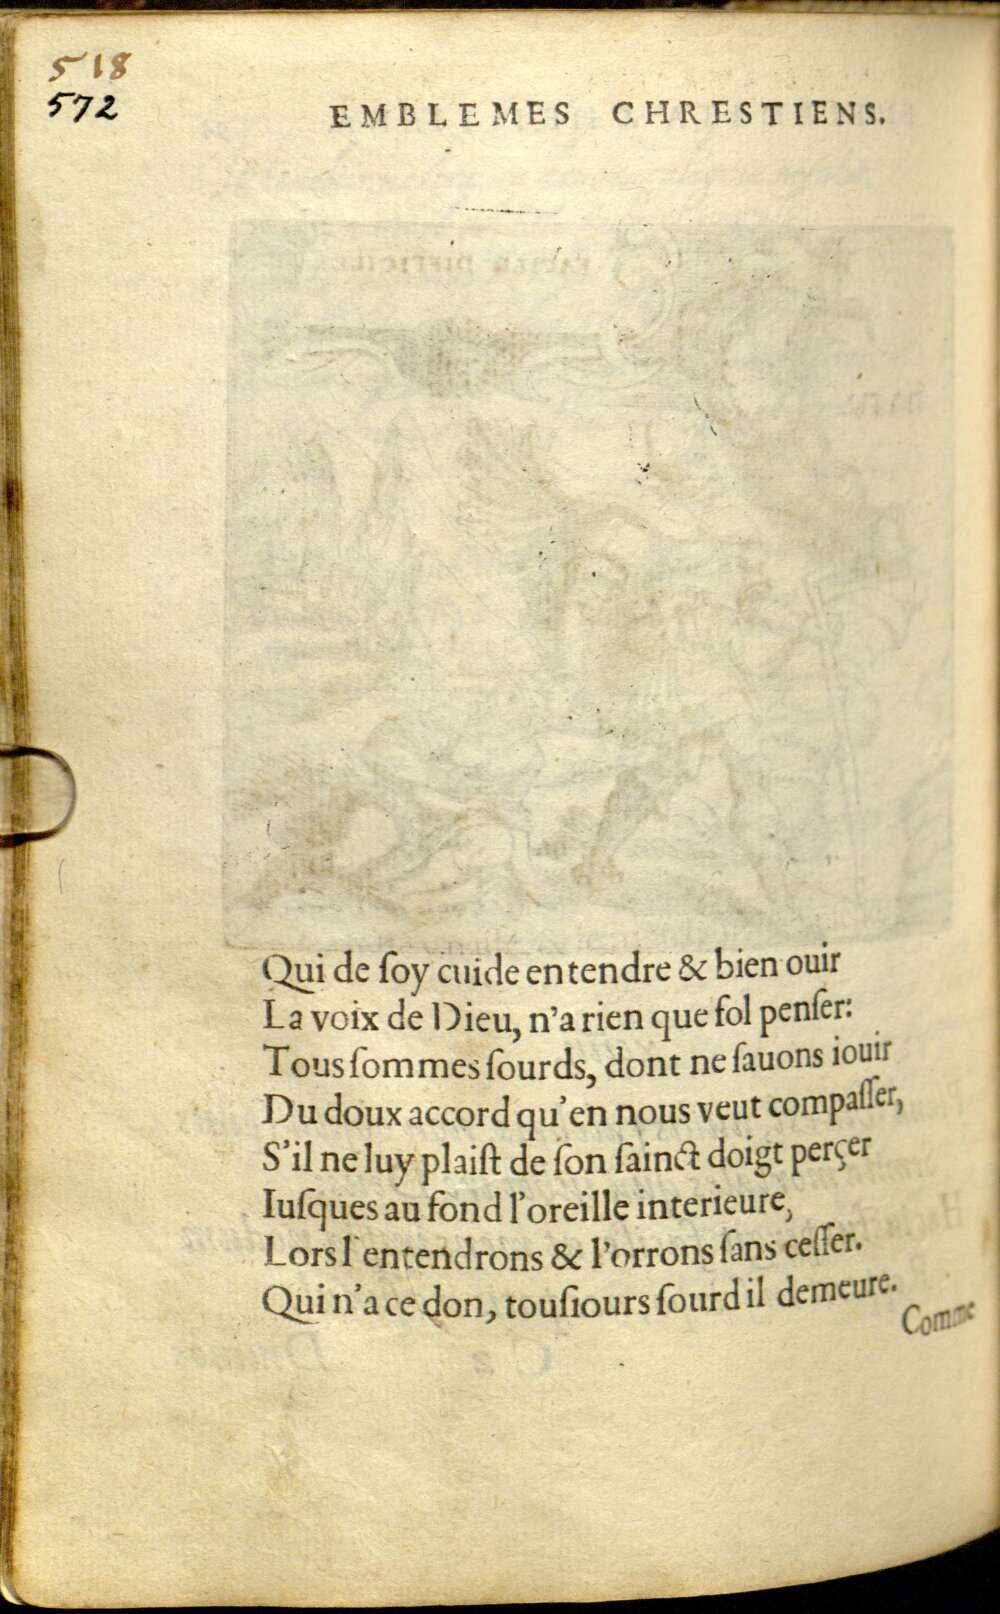 518
572
EMBLEMES CHRESTIENS.
Qui de ſoy cuide entendre & bien ouir
La voix de Dieu, n'a rien que fol penſer:
Tous ſommes ſourds, dont ne ſauons iouir
Du doux accord qu'en nous veut compaſſer,
S'il ne luy plaiſt de ſon ſainct doigt perçer
Iuſques au fond l'oreille interieure,
Lors l'entendrons & l'orrons ſans ceſſer.
Qui n'a ce don, touſiours ſourd il demeure.
Comme